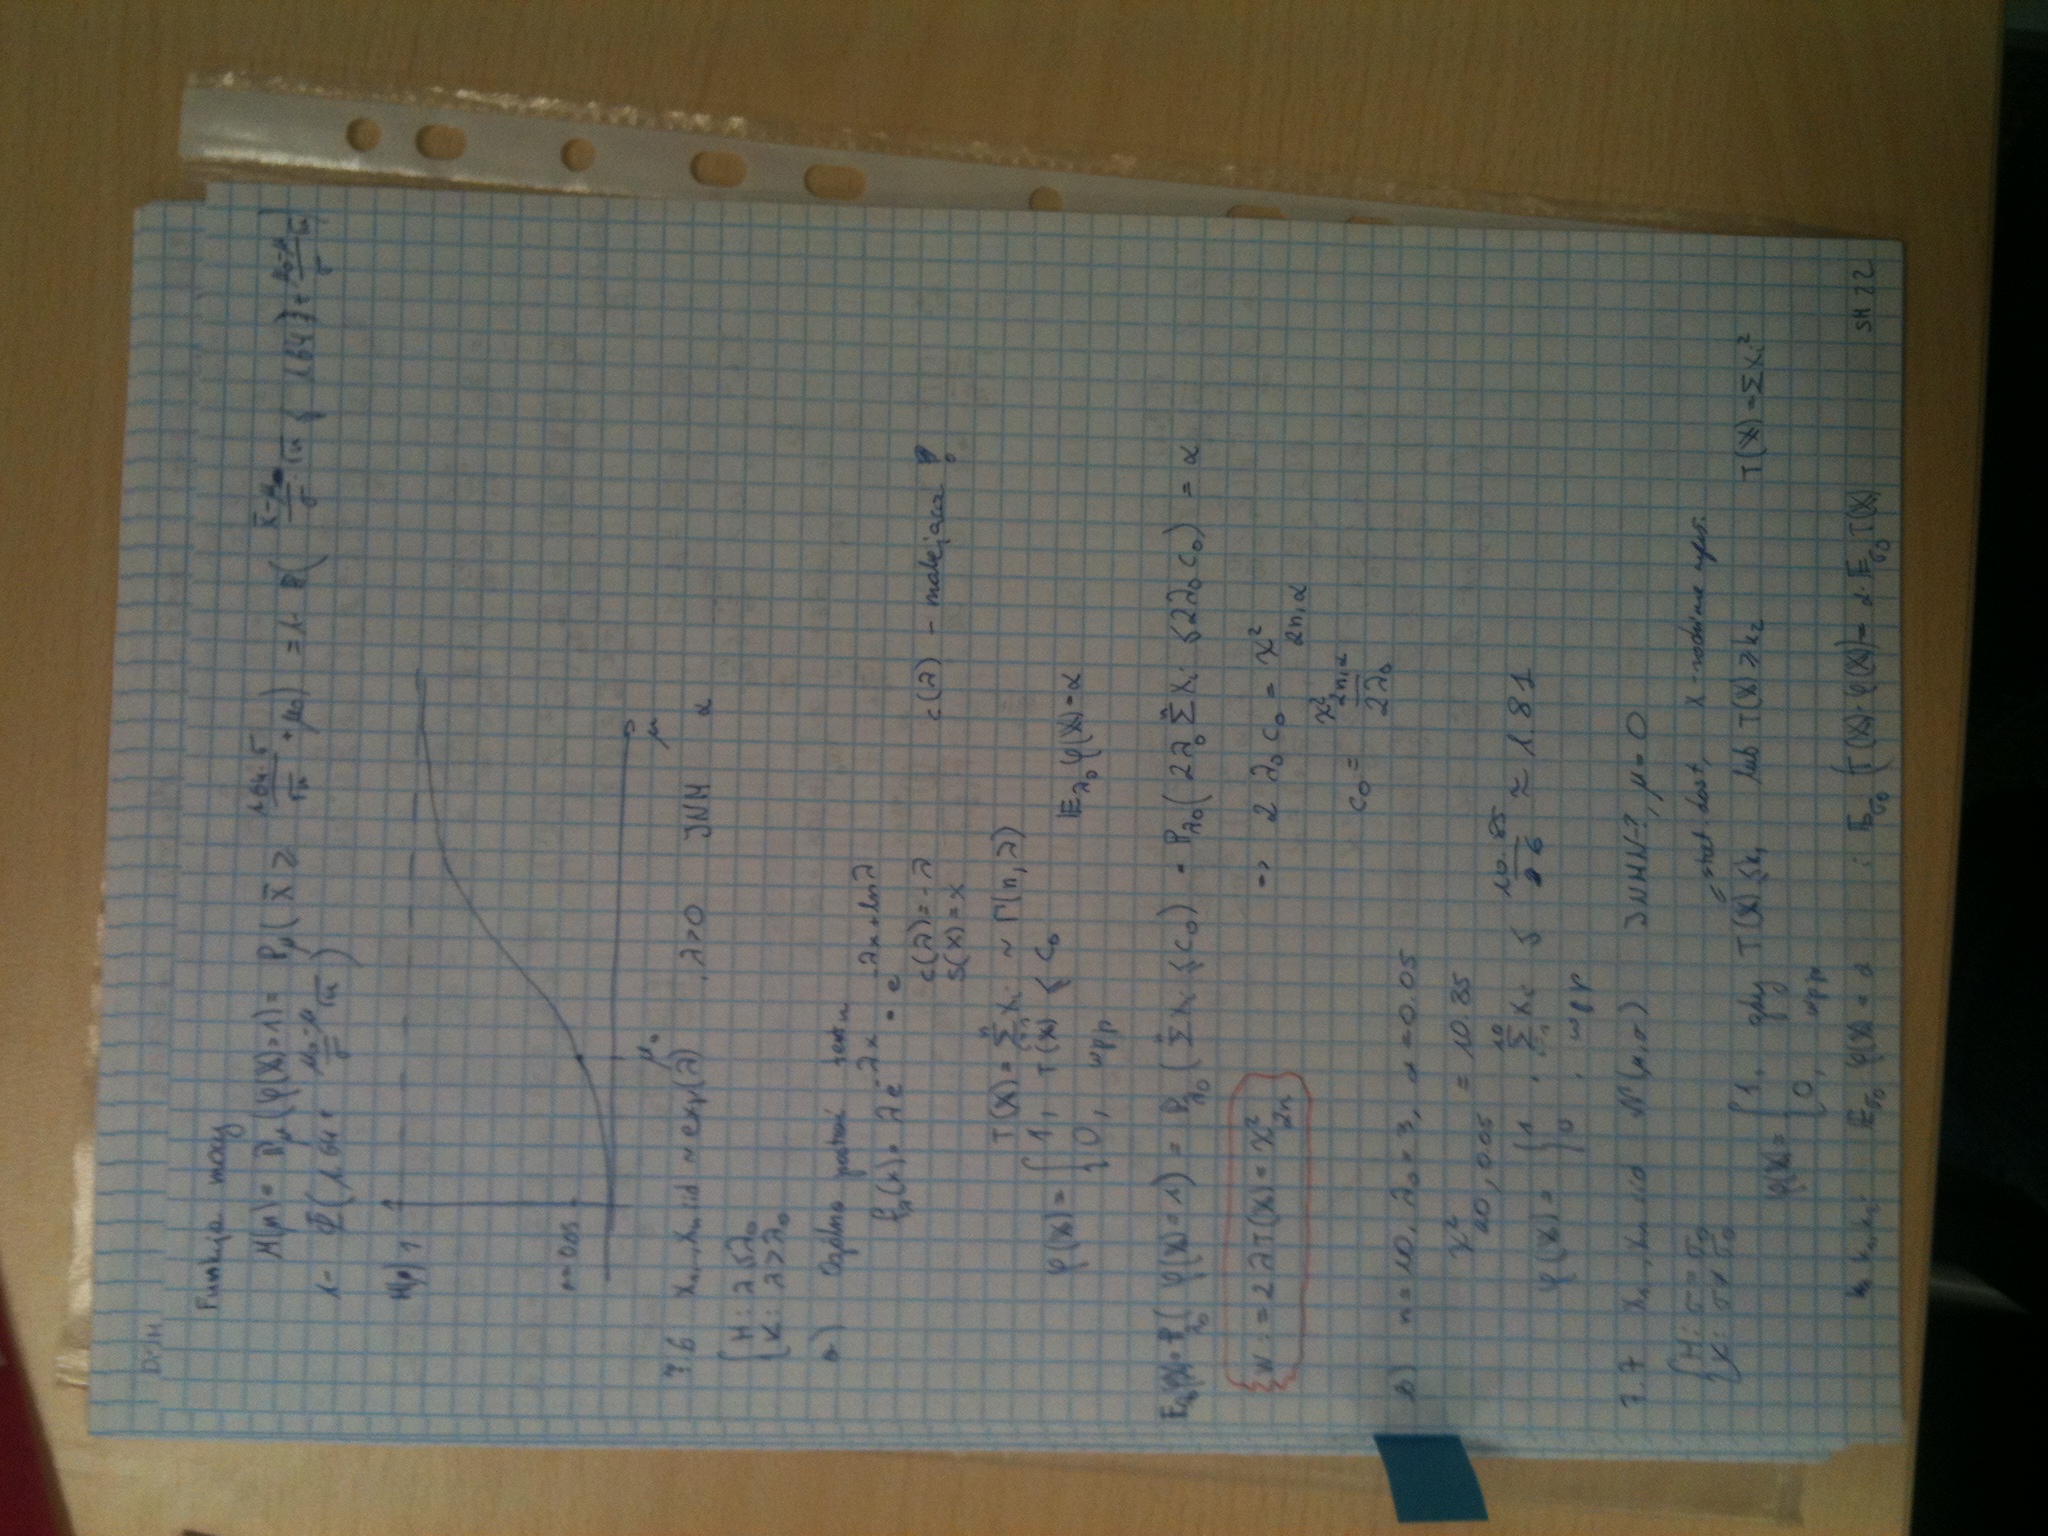 Funkcja mocy
M(μ) = P_μ(φ(X)=1) = P_μ( X̄ ≥ 1.64·σ/√n + μ₀) = 1 - P( (X̄-μ)/σ √n ≤ 1.64 + (μ₀-μ)/σ √n)
1 - Φ(1.64 + (μ₀-μ)/σ √n)
M(μ) 1
α=0.05
μ₀ μ
7.6 X₁,...,Xₙ iid ~ exp(λ) , λ>0 JNM α
{ H: λ ≤ λ₀
K: λ > λ₀
a) Ogólna postać testu
f_λ(x) = λe^{-λx} = e^{-λx+lnλ}
c(λ) = -λ c(λ) - malejąca !
s(x) = x
T(X) = Σⁿ Xᵢ ~ Γ(n, λ)
φ(X) = { 1, T(X) ≤ c₀
0, wpp E_λ₀ φ(X) = α
E_λ₀ φ(X) = P_λ₀( φ(X) = 1) = P_λ₀( Σⁿ Xᵢ ≤ c₀) = P_λ₀( 2λ₀ Σⁿ Xᵢ ≤ 2λ₀c₀) = α
W := 2λT(X) = χ²_{2n} => 2λ₀c₀ = χ²_{2n,α}
c₀ = χ²_{2n,α} / 2λ₀
b) n=10, λ₀=3, α=0.05
χ²_{20,0.05} = 10.85
φ(X) = { 1, Σ¹⁰ Xᵢ ≤ 10.85/6 ≈ 1.81
0, wpp
7.7 X₁,..,Xₙ iid N(μ,σ) JNMN-?, μ=0
{ H: σ = σ₀
K: σ ≠ σ₀
stat. dost, X - rodzina wykł.
φ(X) = { 1, gdy T(X) ≤ k₁ lub T(X) ≥ k₂ T(X) = ΣXᵢ²
0, wpp
k₁, k₂: E_σ₀ φ(X) = α i E_σ₀ (T(X)·φ(X)) = α·E_σ₀ T(X)
SM 22